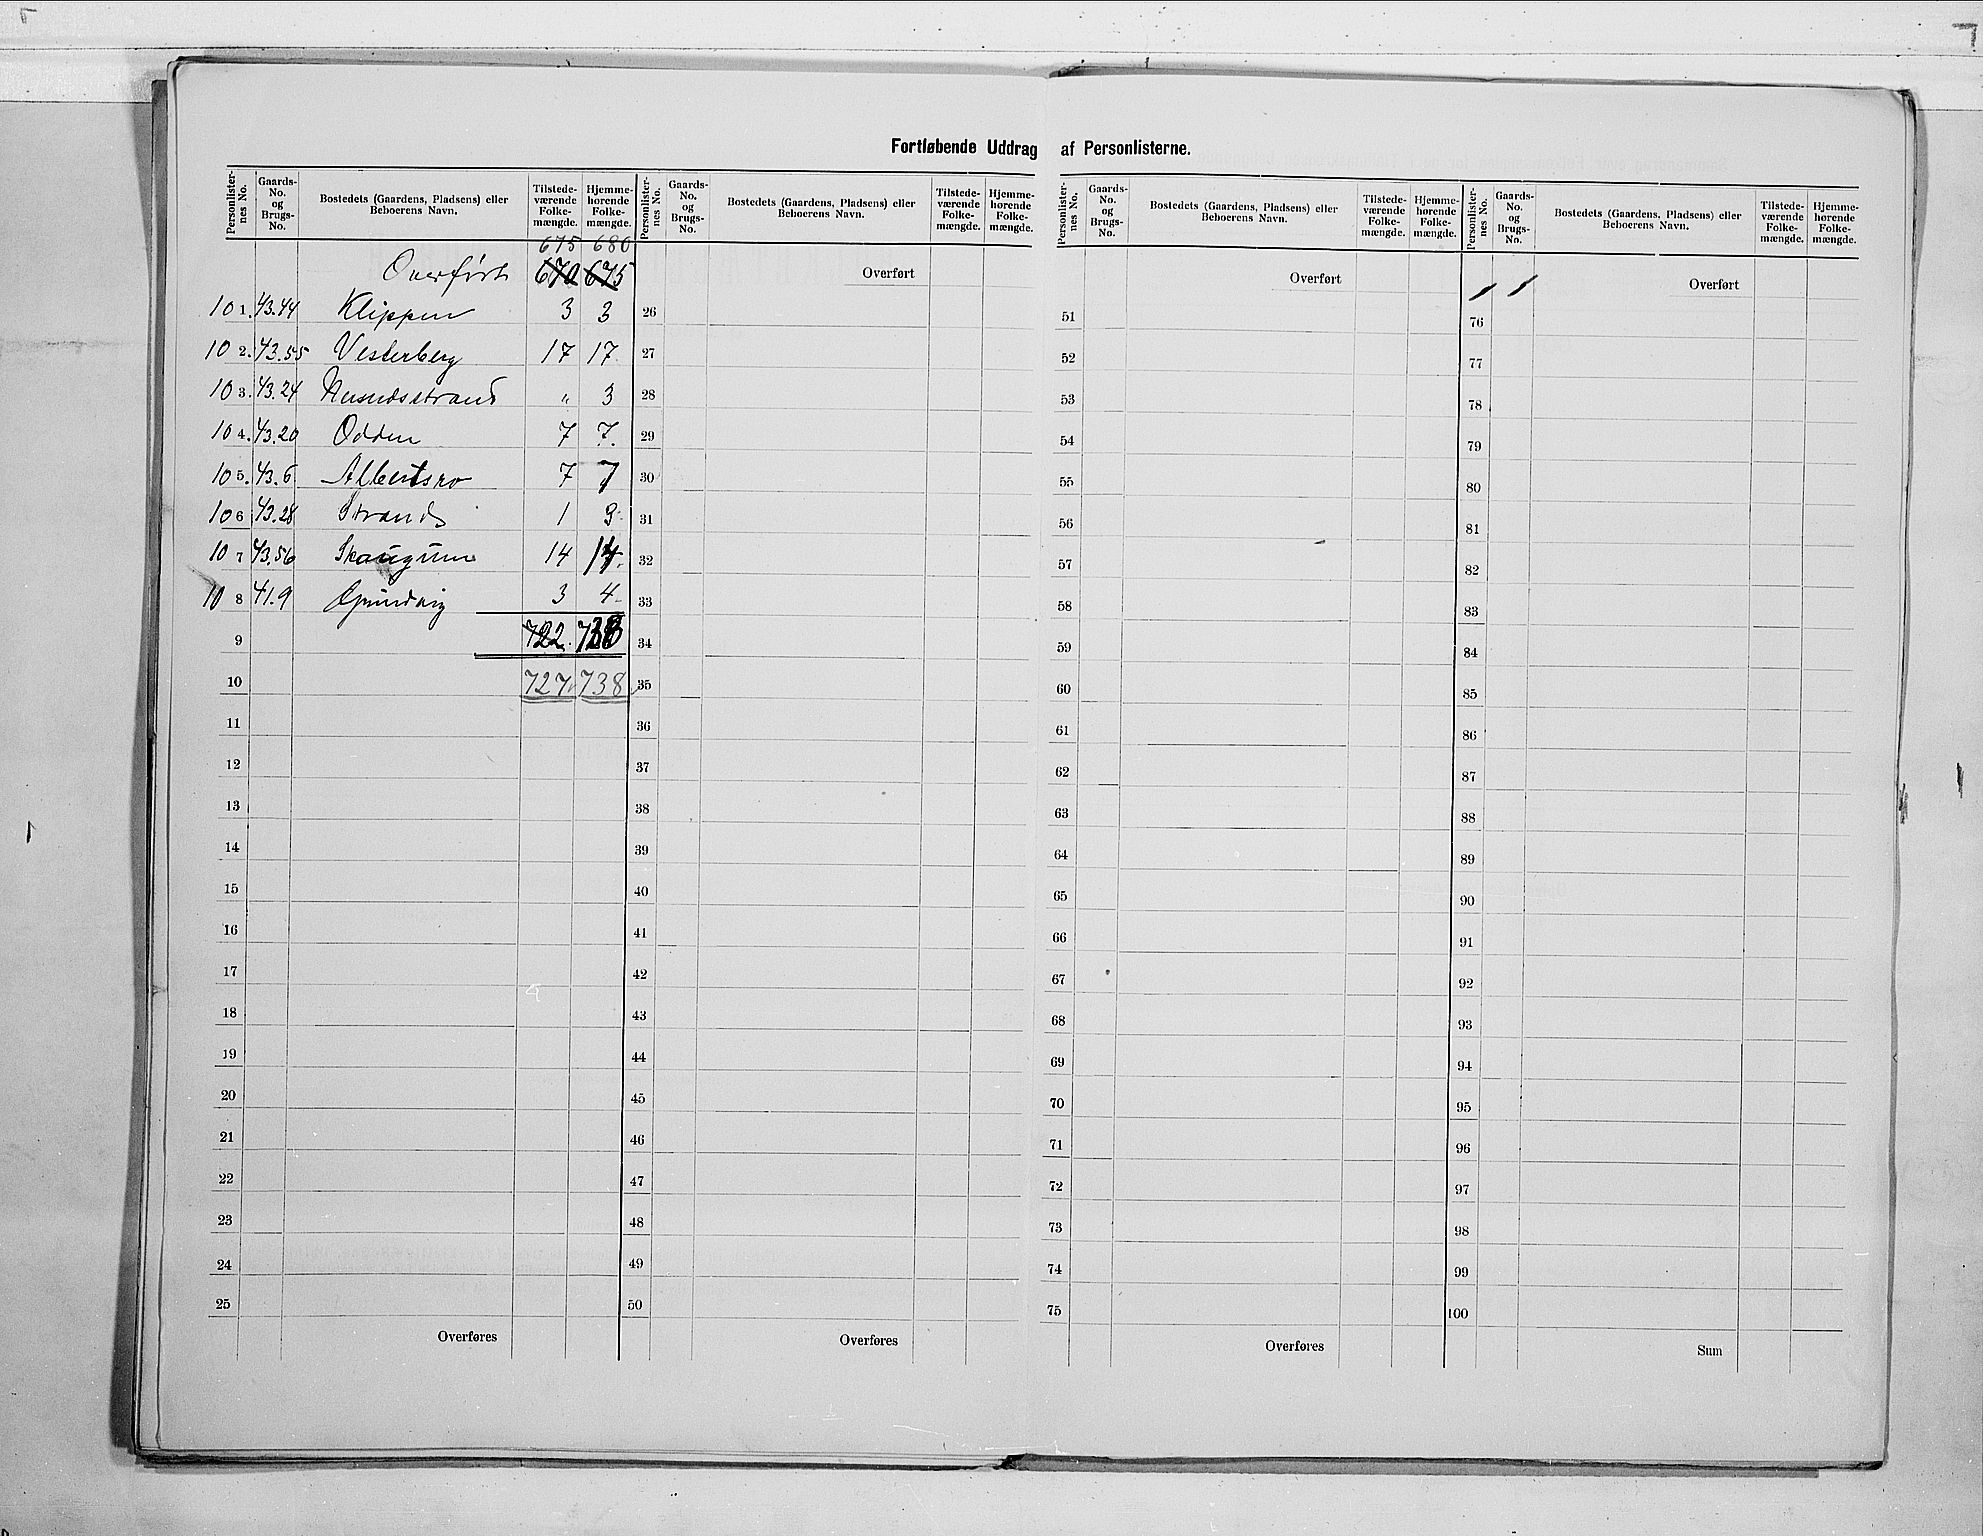 Fortløbende Uddrag af Personlisterne.
Personlister-nes No. Gaards-No. og Brugs-No. Bostedets (Gaardens, Pladsens) eller Beboerens Navn. Tilstede-værende Folke-mængde. Hjemme-hørende Folke-mængde.
675 680
Overført 670 675
101. 43.44 Klippen 3 3
102. 43.55 Vesterberg 17 17
103. 43.24 " 3
104. 43.20 Odden 7 7.
105. 43.6 Albertsro 7 7
106 43.28 Strand 1
107 43.56 Skaugum 14 14.
108 41.9 3 4
9 722. 738
10 727 738
11
12
13
14
15
16
17
18
19
20
21
22
23
24
25
Overføres
Personlister-nes No. Gaards-No. og Brugs-No. Bostedets (Gaardens, Pladsens) eller Beboerens Navn. Tilstede-værende Folke-mængde. Hjemme-hørende Folke-mængde.
Overført
26
27
28
29
30
31
32
33
34
35
36
37
38
39
40
41
42
43
44
45
46
47
48
49
50
Overføres
Personlister-nes No. Gaards-No. og Brugs-No. Bostedets (Gaardens, Pladsens) eller Beboerens Navn. Tilstede-værende Folke-mængde. Hjemme-hørende Folke-mængde.
Overført
51
52
53
54
55
56
57
58
59
60
61
62
63
64
65
66
67
68
69
70
71
72
73
74
75
Overføres
Personlister-nes No. Gaards-No. og Brugs-No. Bostedets (Gaardens, Pladsens) eller Beboerens Navn. Tilstede-værende Folke-mængde. Hjemme-hørende Folke-mængde.
Overført
76
77
78
79
80
81
82
83
84
85
86
87
88
89
90
91
92
93
94
95
96
97
98
99
100
Sum